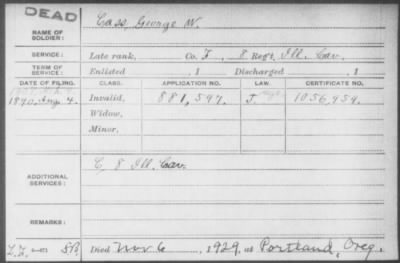 DEAD
NAME OF SOLDIER:
Cass, George W.
SERVICE:
Late rank, Co. F, 8 Regt. Ill. Cav.
TERM OF SERVICE:
Enlisted , 1 Discharged , 1
DATE OF FILING. CLASS. APPLICATION NO. LAW. CERTIFICATE NO.
1890, Aug. 4. Invalid, 881,597. J. 1056,959.
Widow,
Minor,
ADDITIONAL SERVICES:
C, 8 Ill. Cav.
REMARKS:
Died Nov 6 , 1929, at Portland, Oreg.